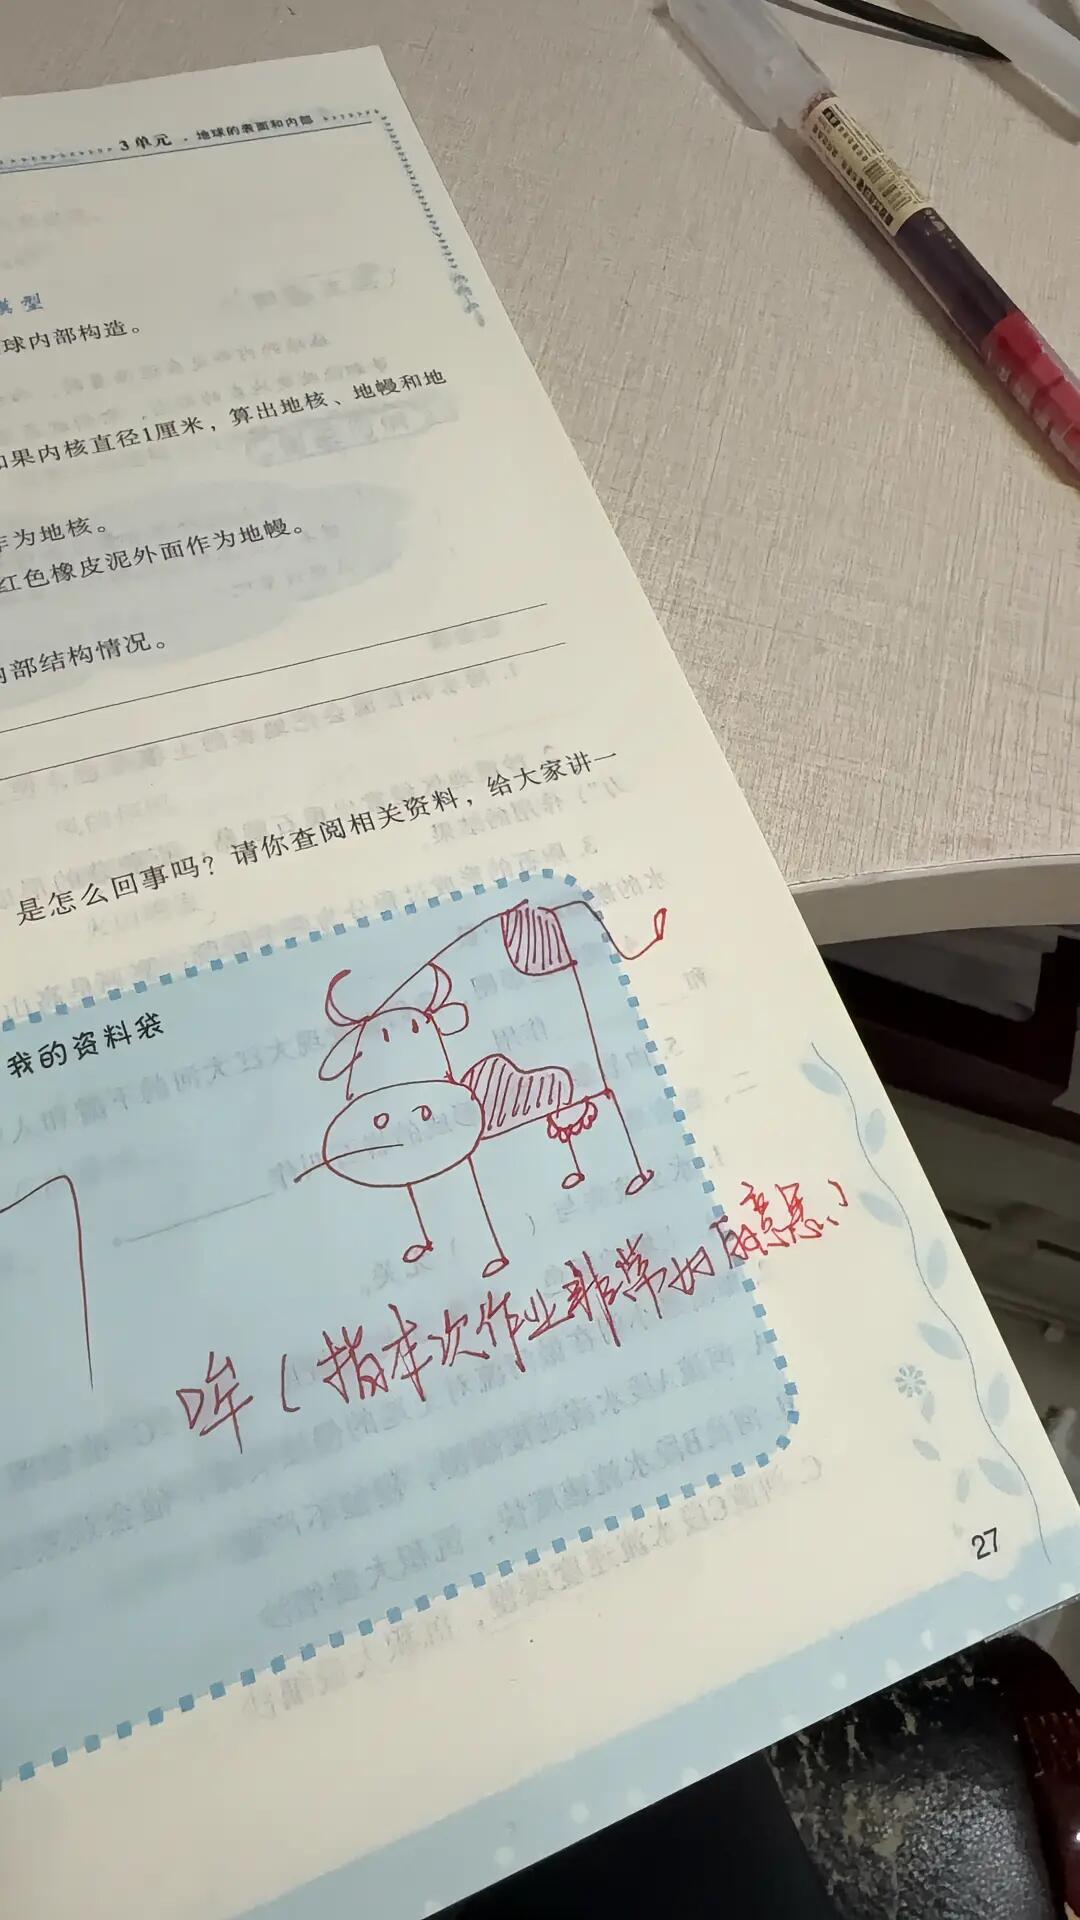 3单元·地球的表面和内部
模型
球内部构造。
如果内核直径1厘米，算出地核、地幔和地
作为地核。
红色橡皮泥外面作为地幔。
内部结构情况。
是怎么回事吗？请你查阅相关资料，给大家讲一
我的资料袋
哞（指本次作业非常扣的意思）
27